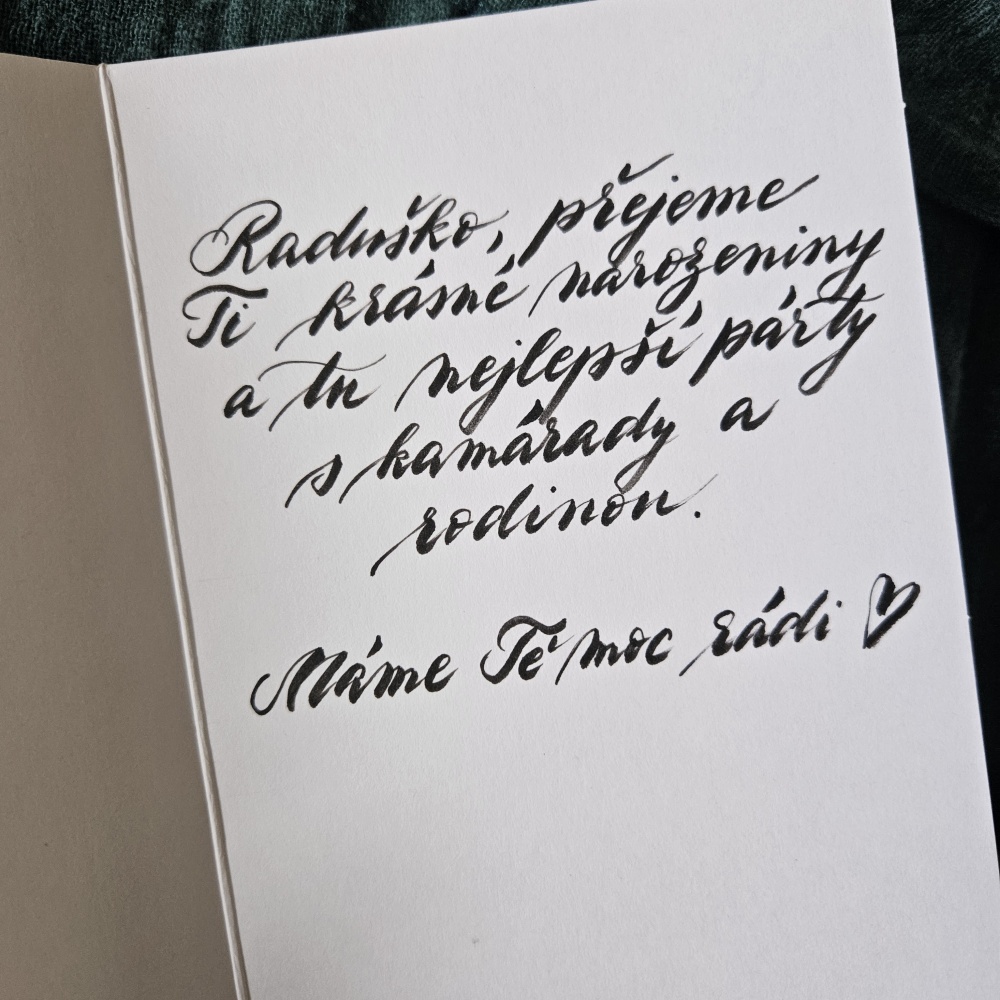 Raduško, přejeme
Ti krásné narozeniny
a tu nejlepší párty
s kamárady a
rodinou.
Máme Tě moc rádi ♡